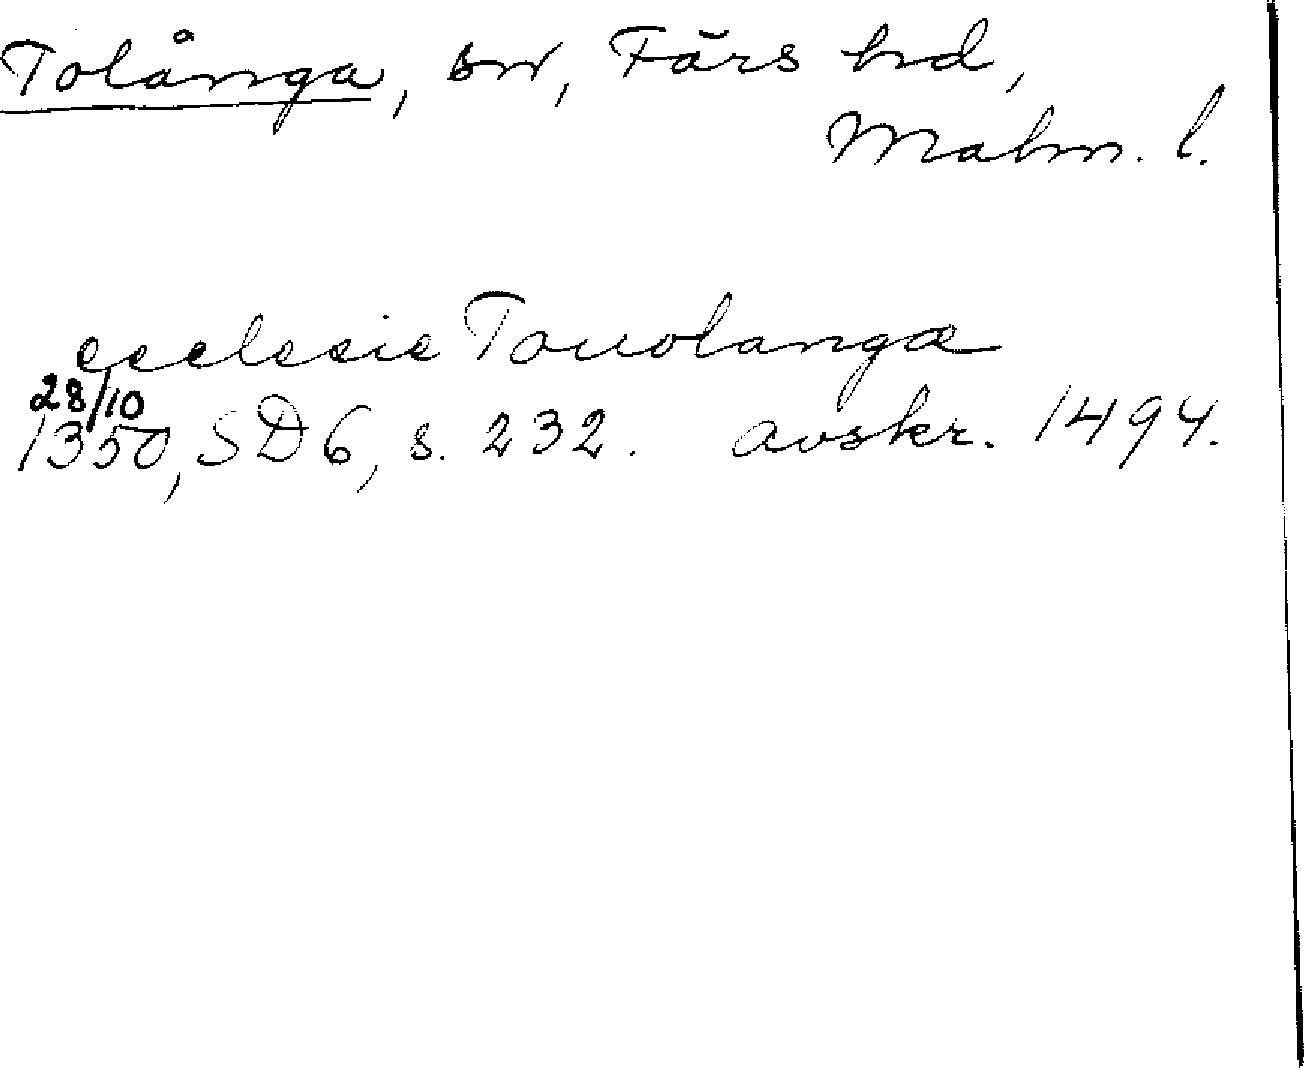 Tolånga, sn, Färs hd,
Malm. l.
ecclesie Touolanga
28/10
1350, SD 6, s. 232. avskr. 1494.